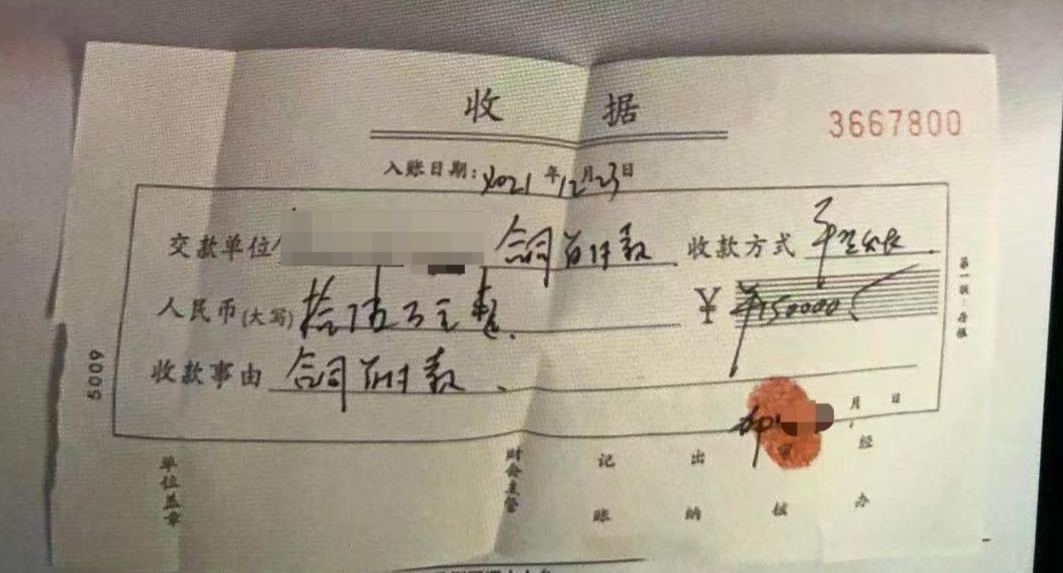 收 据
3667800
入账日期:2021年12月23日
交款单位 合同首付款 收款方式
人民币(大写)拾伍万元整 ¥ ¥150000
收款事由 合同首付款
月 日
5009
第一联:存根
单位盖章 财会主管 记账 出纳 审核 经办